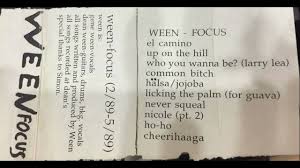 WEEN FOCUS
ween-focus (2/89-5/89)
ween is:
gene ween-vocals
dean ween-guitars, drums, bkg. vocals
all songs written and produced by Ween
all songs recorded at dean's
special thanks to
WEEN - FOCUS
el camino
up on the hill
who you wanna be? (larry lea)
common bitch
halsa/jojoba
licking the palm (for guava)
never squeal
nicole (pt. 2)
ho-ho
cheerihaaga